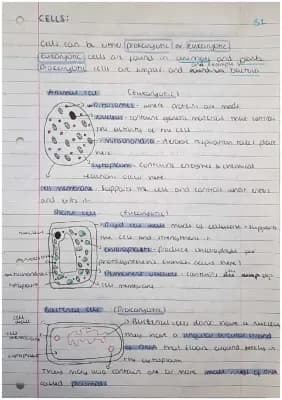 CELLS:
B1
Cells can be either prokaryotic or eukaryotic
Eukaryotic cells are found in animals and plants
Prokaryotic cells are simpler and bacteria
Animal cell (Eukaryotic)
Ribosomes - where protein are made
nucleus - contains genetic material that control
the activity of the cell
mitochondria - Aerobic respiration takes place
here
cytoplasm - contains enzymes & chemical
reactions occur here
cell membrane supports the cell and controls what enters
and exits it
Plant cell (Eukaryotic)
Rigid cell wall made of cellulose - supports
the cell and strengthens it
chloroplasts - produce
photosynthesis occurs here
Permanent vacuole - contains cell sap
cell membrane
nucleus
cytoplasm
Bacterial cell (Prokaryotic)
cell wall
cell membrane
cytoplasm
Bacterial cells don't have a nucleus
They have a singular circular strand
of DNA that floats around freely in
the cytoplasm
They may also contain one or more small rings of DNA
called plasmids